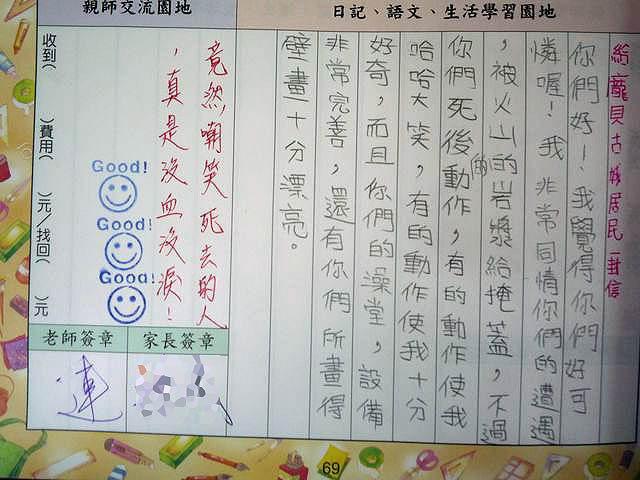 日記、語文、生活學習園地
給龐貝古城居民一封信
你們好！我覺得你們好可
憐喔！我非常同情你們的遭遇
，被火山的岩漿給掩蓋，不過
你們死後的動作，有的動作使我
哈哈大笑，有的動作使我十分
好奇，而且你們的澡堂，設備
非常完善，還有你們所畫得
壁畫十分漂亮。
親師交流園地
竟然嘲笑死去的人
，真是沒血沒淚！
Good!
Good!
Good!
收到( )費用( )元/找回( )元
家長簽章
老師簽章
連
69